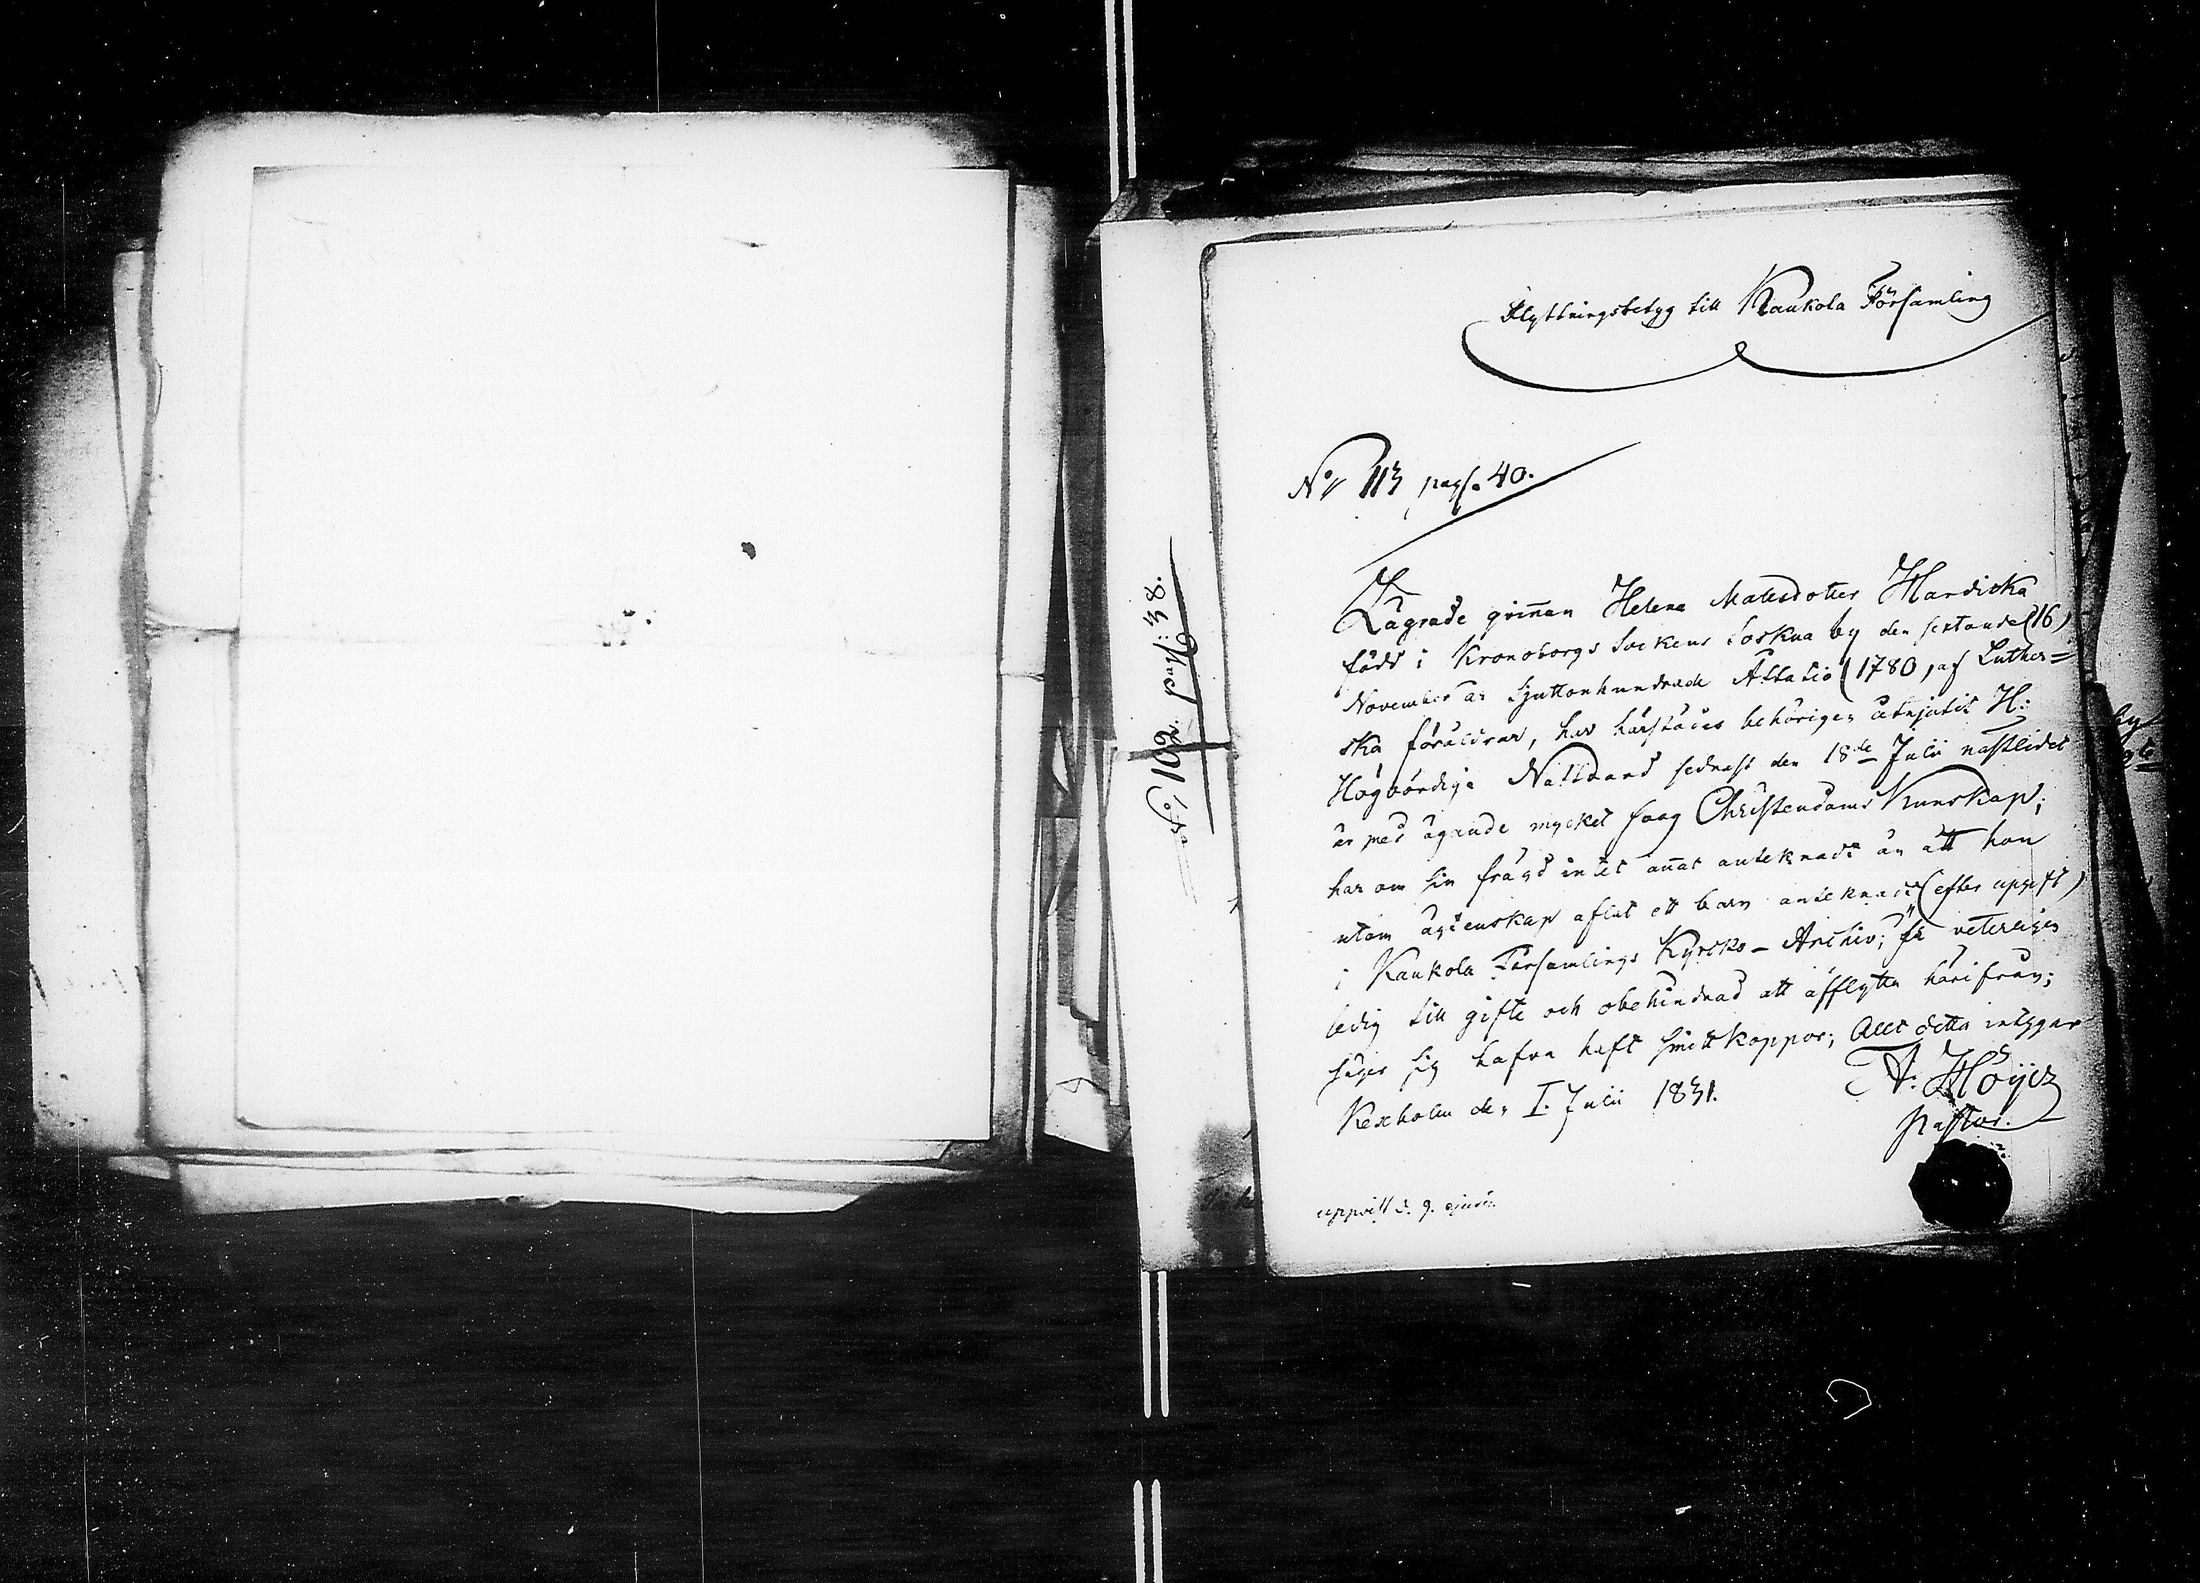 Flyttningsbetyg till Kaukola Församling
No 113 pag. 40.
No 102. pag: 38.
Lägrade qvinnan Helena Mattsdotter Hardicka
född i Kronoborgs Sockens Soskua by den sextonde (16)
November år Sjuttonhundrade Åttatio (1780, af Luther=
ska föräldrar, har härstädes behörigen åtnjutit H:
Högvördiga Nattvard sednast den 18de Julii nästlidet
år med ägande mycket svag Christendoms Kunskap;
har om sin frägd intet annat anteknadt än att hon
utom ägtenskap aflat ett barn anteknadt (efter uppgift)
i Kaukola Församlings Kyrcko-Archiv; är veterligen
ledig till gifte och obehindrad att afflytta härifrån;
säger sig hafva haft Smittkoppor; Allt detta intygar
Kexholm den 1. Julii 1831.
A: Höijer
Pastor.
uppvist d. 9. ejusd.